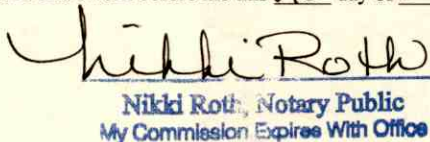 day of
Nikki Roth
Nikki Roth, Notary Public
My Commission Expires With Office